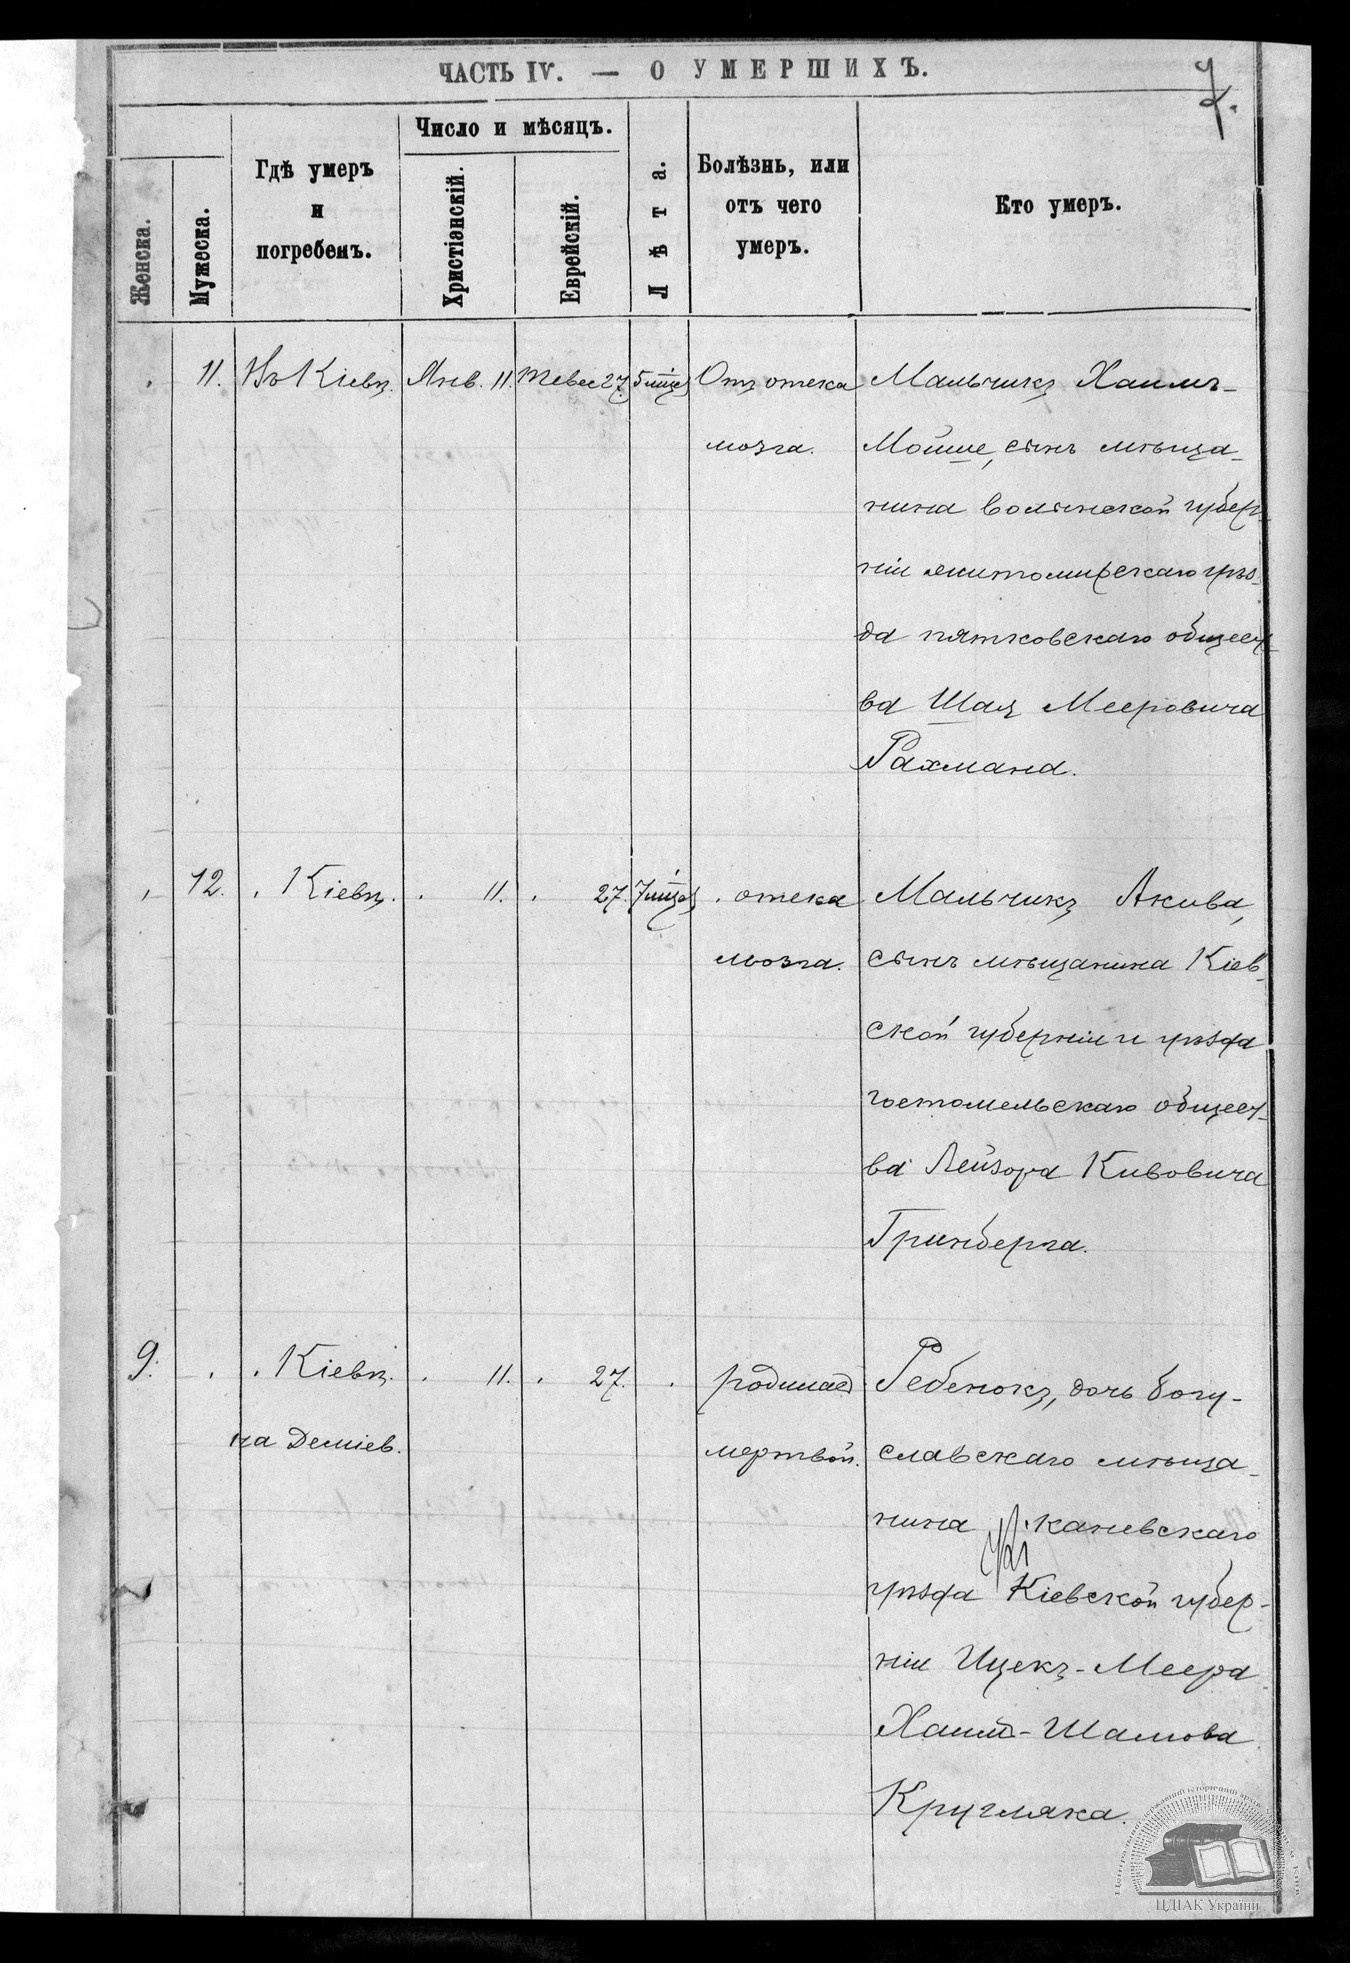 ЧАСТЬ IV. — О УМЕРШИХЪ.
7.
Женска.
Мужеска.
Гдѣ умеръ
и
погребенъ.
Число и мѣсяцъ.
Христіянскій.
Еврейскій.
Лѣта.
Болѣзнь, или
отъ чего
умеръ.
Кто умеръ.
11. Въ Кіевѣ. Янв. 11. Тевес 27. 5 мѣс. Отъ отека
мозга.
Мальчикъ Хаимъ-
Мойше, сынъ мѣща-
нина волынской губер-
ніи житомирскаго уѣз-
да пятковскаго общест-
ва Шая Мееровича
Рахмана.
12. Кіевѣ. 11. 27. 7 мѣс. отека
мозга.
Мальчикъ Акива,
сынъ мѣщанина Кіев-
ской губерніи и уѣзда
гостомельскаго общест-
ва Лейзора Кивовича
Гринберга.
9. Кіевѣ. 11. 27.
на Деміев.
родилась
мертвой.
Ребенокъ, дочь богу-
славскаго мѣща-
нина каневскаго
уѣзда Кіевской губер-
ніи Ицекъ-Меера
Хаим-Шамова
Кругляка.
ЦДІАК України